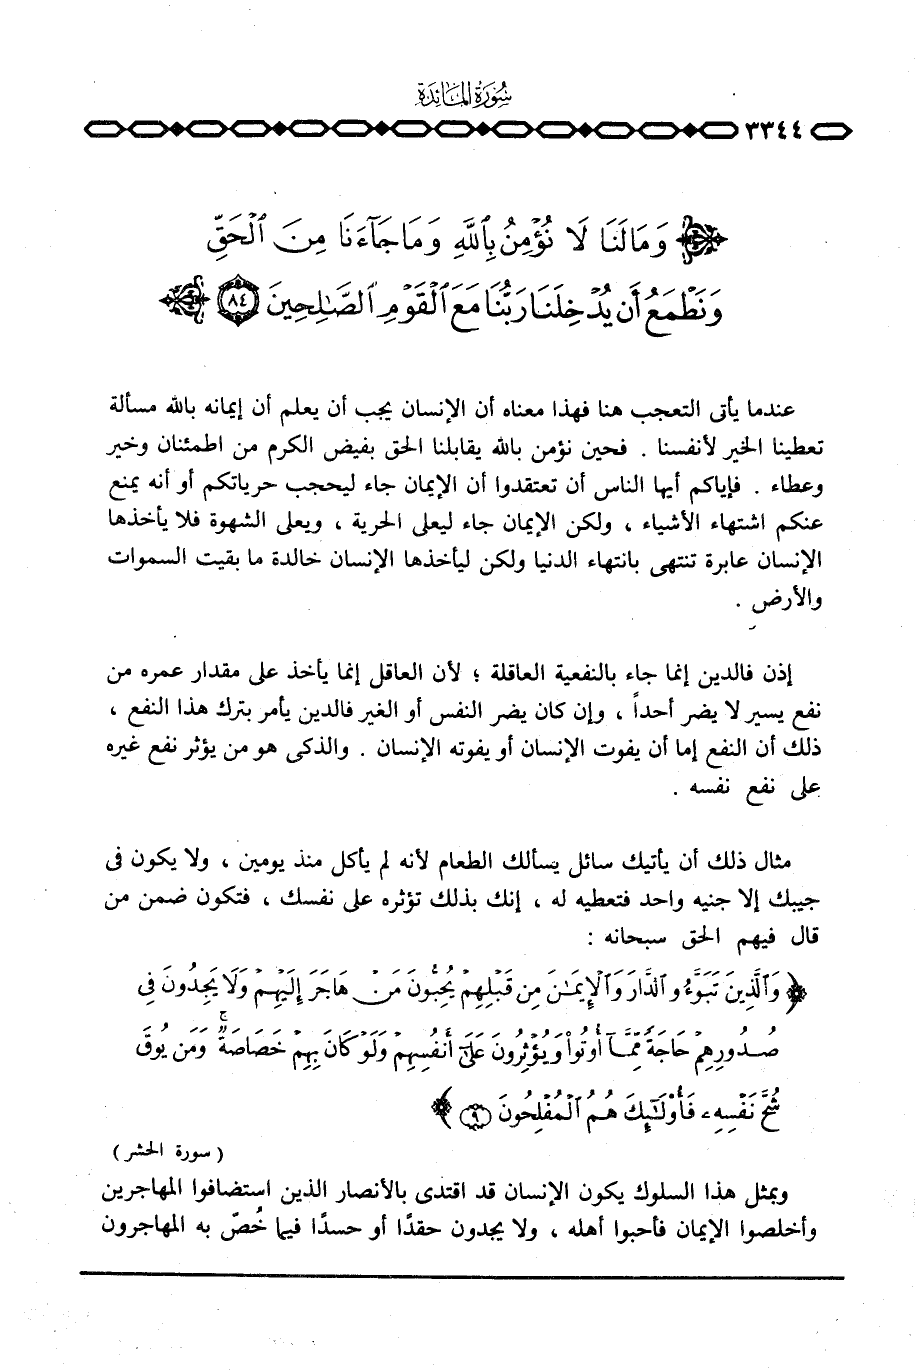 سُورَةُ المَائِدَة
٣٣٤٤
وَمَا لَنَا لَا نُؤْمِنُ بِٱللَّهِ وَمَا جَآءَنَا مِنَ ٱلْحَقِّ
وَنَطْمَعُ أَن يُدْخِلَنَا رَبُّنَا مَعَ ٱلْقَوْمِ ٱلصَّٰلِحِينَ ﴿٨٤﴾
عندما يأتى التعجب هنا فهذا معناه أن الإنسان يجب أن يعلم أن إيمانه بالله مسألة
تعطينا الخير لأنفسنا . فحين نؤمن بالله يقابلنا الحق بفيض الكرم من اطمئنان وخير
وعطاء . فإياكم أيها الناس أن تعتقدوا أن الإيمان جاء ليحجب حرياتكم أو أنه يمنع
عنكم اشتهاء الأشياء ، ولكن الإيمان جاء ليعلى الحرية ، ويعلى الشهوة فلا يأخذها
الإنسان عابرة تنتهى بانتهاء الدنيا ولكن ليأخذها الإنسان خالدة ما بقيت السموات
والأرض .
إذن فالدين إنما جاء بالنفعية العاقلة ؛ لأن العاقل إنما يأخذ على مقدار عمره من
نفع يسير لا يضر أحداً ، وإن كان يضر النفس أو الغير فالدين يأمر بترك هذا النفع ،
ذلك أن النفع إما أن يفوت الإنسان أو يفوته الإنسان . والذكى هو من يؤثر نفع غيره
على نفع نفسه .
مثال ذلك أن يأتيك سائل يسألك الطعام لأنه لم يأكل منذ يومين ، ولا يكون فى
جيبك إلا جنيه واحد فتعطيه له ، إنك بذلك تؤثره على نفسك ، فتكون ضمن من
قال فيهم الحق سبحانه :
﴿ وَٱلَّذِينَ تَبَوَّءُو ٱلدَّارَ وَٱلْإِيمَٰنَ مِن قَبْلِهِمْ يُحِبُّونَ مَنْ هَاجَرَ إِلَيْهِمْ وَلَا يَجِدُونَ فِى
صُدُورِهِمْ حَاجَةً مِّمَّآ أُوتُوا۟ وَيُؤْثِرُونَ عَلَىٰٓ أَنفُسِهِمْ وَلَوْ كَانَ بِهِمْ خَصَاصَةٌ ۚ وَمَن يُوقَ
شُحَّ نَفْسِهِۦ فَأُو۟لَٰٓئِكَ هُمُ ٱلْمُفْلِحُونَ (٩) ﴾
( سورة الحشر )
وبمثل هذا السلوك يكون الإنسان قد اقتدى بالأنصار الذين استضافوا المهاجرين
وأخلصوا الإيمان فأحبوا أهله ، ولا يجدون حقدًا أو حسدًا فيما خُصّ به المهاجرون